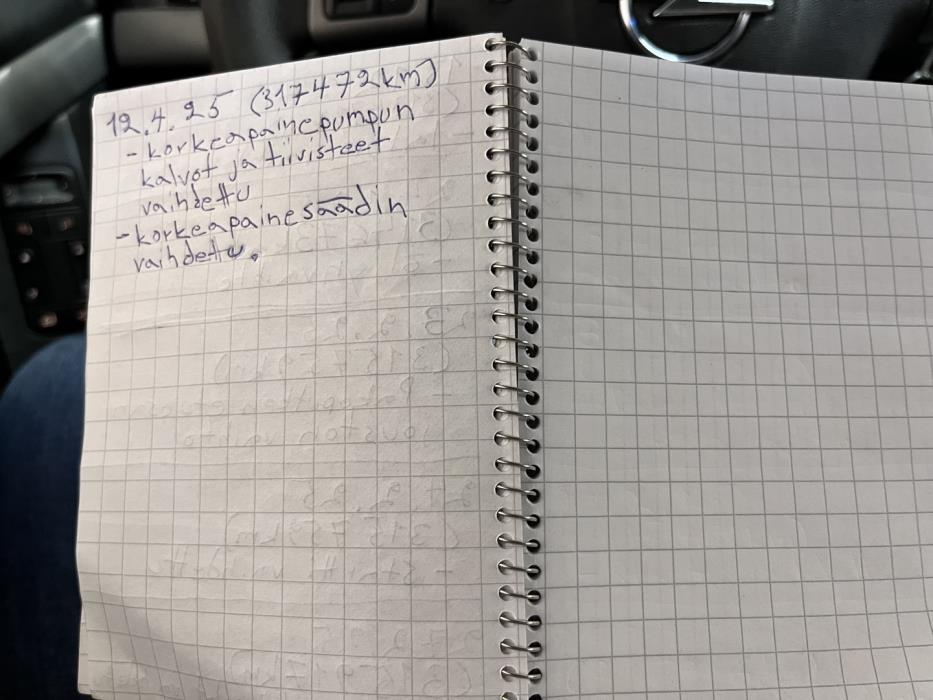 12.4.25 (317472km)
- korkeapainepumpun
kalvot ja tiivisteet
vaihdettu
- korkeapainesäädin
vaihdettu.